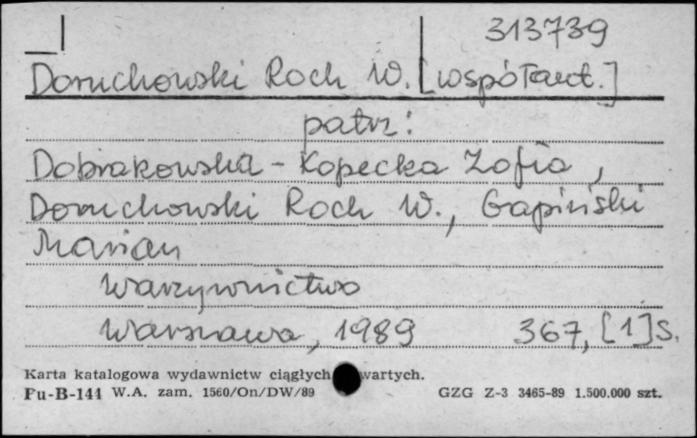 313739
Doruchowski Roch W. [współaut.]
patrz:
Dobrakowska-Kopecka Zofia,
Doruchowski Roch W., Gapiński
Marian
Warzywnictwo
Warszawa, 1989 367, [1]s.
Karta katalogowa wydawnictw ciągłych wartych.
Pu-B-144 W.A. zam. 1560/On/DW/89 GZG Z-3 3465-89 1.500.000 szt.